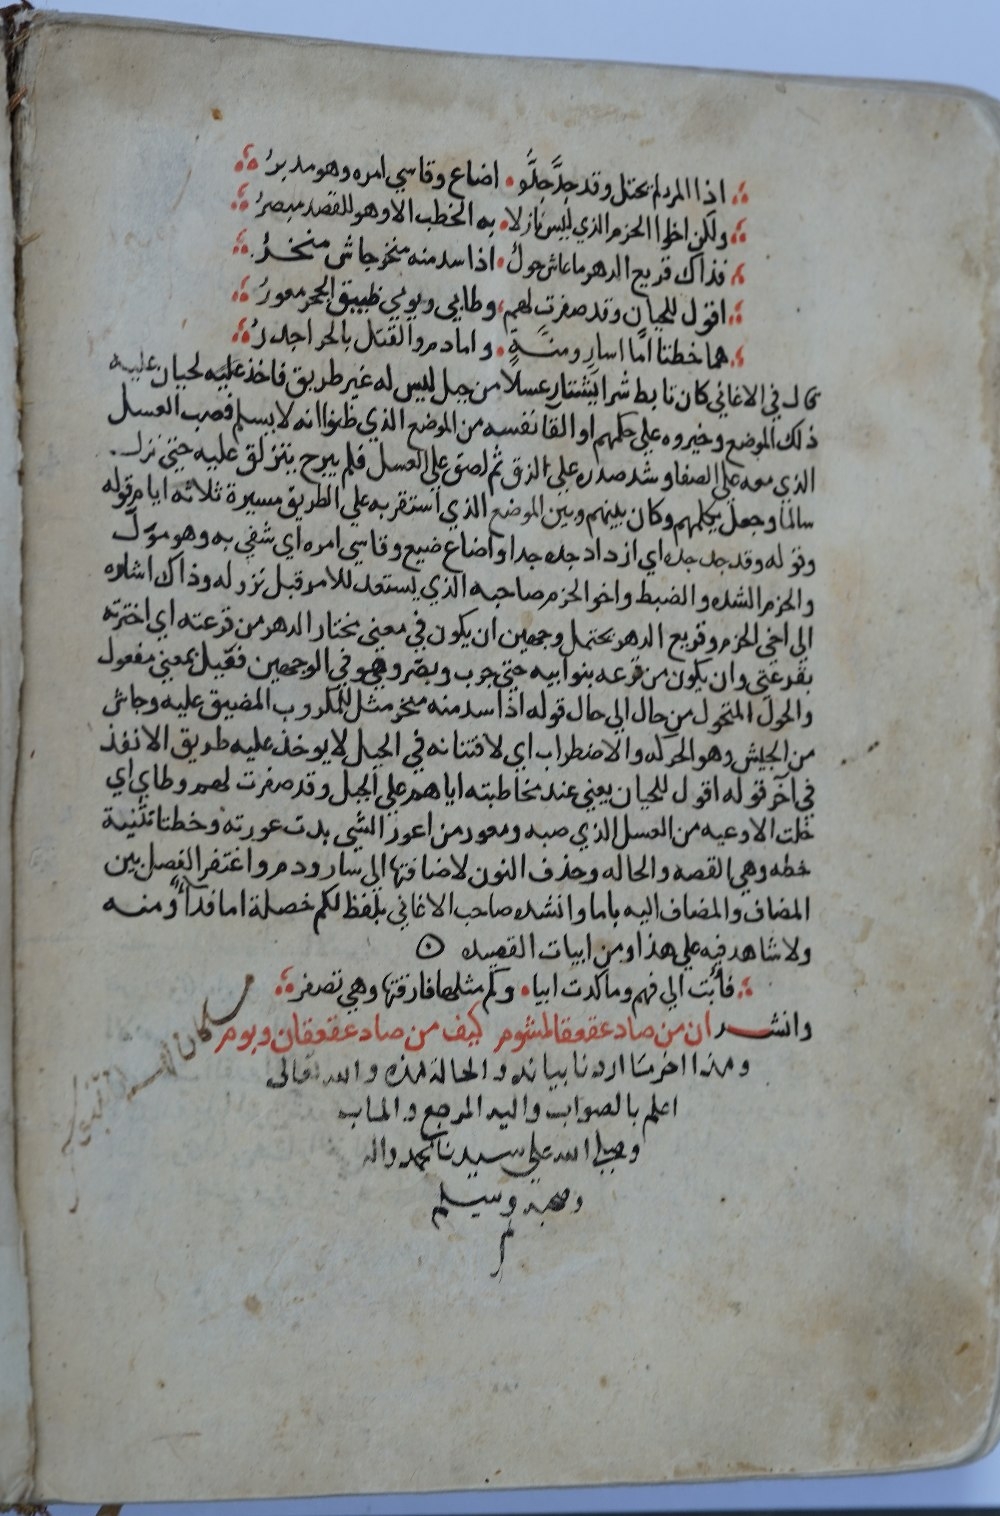 اذا المرء لم يحتل وقد جدّ جدّه اضاع وقاسي امره وهو مدبرُ
ولكن اخوا الحزم الذي ليس نازلا به الخطب الا وهو للقصد مبصرُ
فذاك قريع الدهر ما عاش حولُ اذا سد منه منخر جاش منخرُ
اقول للحيان وقد صفرت لهم وطابي ويومي ضيق الحجر معورُ
هما خطتا امّا اسارٍ ومنةٍ واما دم والقتل بالحر اجدرُ
قال في الاغاني كان تابط شرا يشتار عسلا من جبل ليس له غير طريق فاخذ عليه لحيان عليه
ذلك الموضع وخيروه علي حكمهم او القا نفسه من الموضع الذي ظنوا انه لا يسلم فصب العسل
الذي معه علي الصفا وشد صدره علي الزق ثم لصق علي العسل فلم يبرح يتزلق عليه حتي نزل
سالما وجعل يكلمهم وكان بينهم وبين الموضع الذي استقر به علي الطريق مسيرة ثلاثه ايام قوله
وقوله وقد جد جده اي ازداد جده جدا واضاع ضيع وقاسي امره اي شفي به وهو موّل
والحزم الشده والضبط واخو الحزم صاحبه الذي يستعد للامر قبل نزوله وذاك اشاره
الي اخي الحزم وقريع الدهر يحتمل وجهين ان يكون في معني مختار الدهر من قرعته اي اخترته
بقرعتي وان يكون من قرعه بنوايبه حتي جرب وبصّر وهو في الوجهين فعيل بمعني مفعول
والحول المتحول من حال الي حال قوله اذا سد منه منخر مثل للمكروب المضيق عليه وجاش
من الجيش وهو الحركه والاضطراب اي لافتنانه في الحيل لا يوخذ عليه طريق الا نفذ
في آخر قوله اقول للحيان يعني عند مخاطبته اياهم علي الجبل وقد صفرت لهم وطابي اي
خلت الاوعيه من العسل الذي صبه ومعور من اعور الشي بدت عورته وخطتا تثنية
خطه وهي القصه والحاله وحذف النون لاضافتها الي اسار ودم واغتفر الفصل بين
المضاف والمضاف اليه باما وانشده صاحب الاغاني بلفظ لكم خصلة اما فدآءً ومنه
ولا شاهد فيه علي هذا ومن ابيات القصيده
فأبت الي فهم وما كدت ايبا وكم مثلها فارقتها وهي تصفر
وانشد ان من صاد عقعقا لمشوم كيف من صاد عقعقان وبوم
وهذا اخر ما اردنا بيانه والحالة هذه والله تعالى
اعلم بالصواب واليه المرجع والماب
وصلي الله علي سيدنا محمد واله
وصحبه وسلم
م